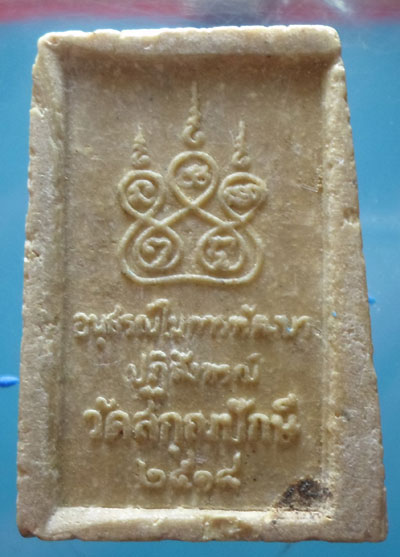 อนุสรณ์ในการพัฒนา
ปฏิสังขรณ์
วัดสกุณปักษี
๒๕๑๔